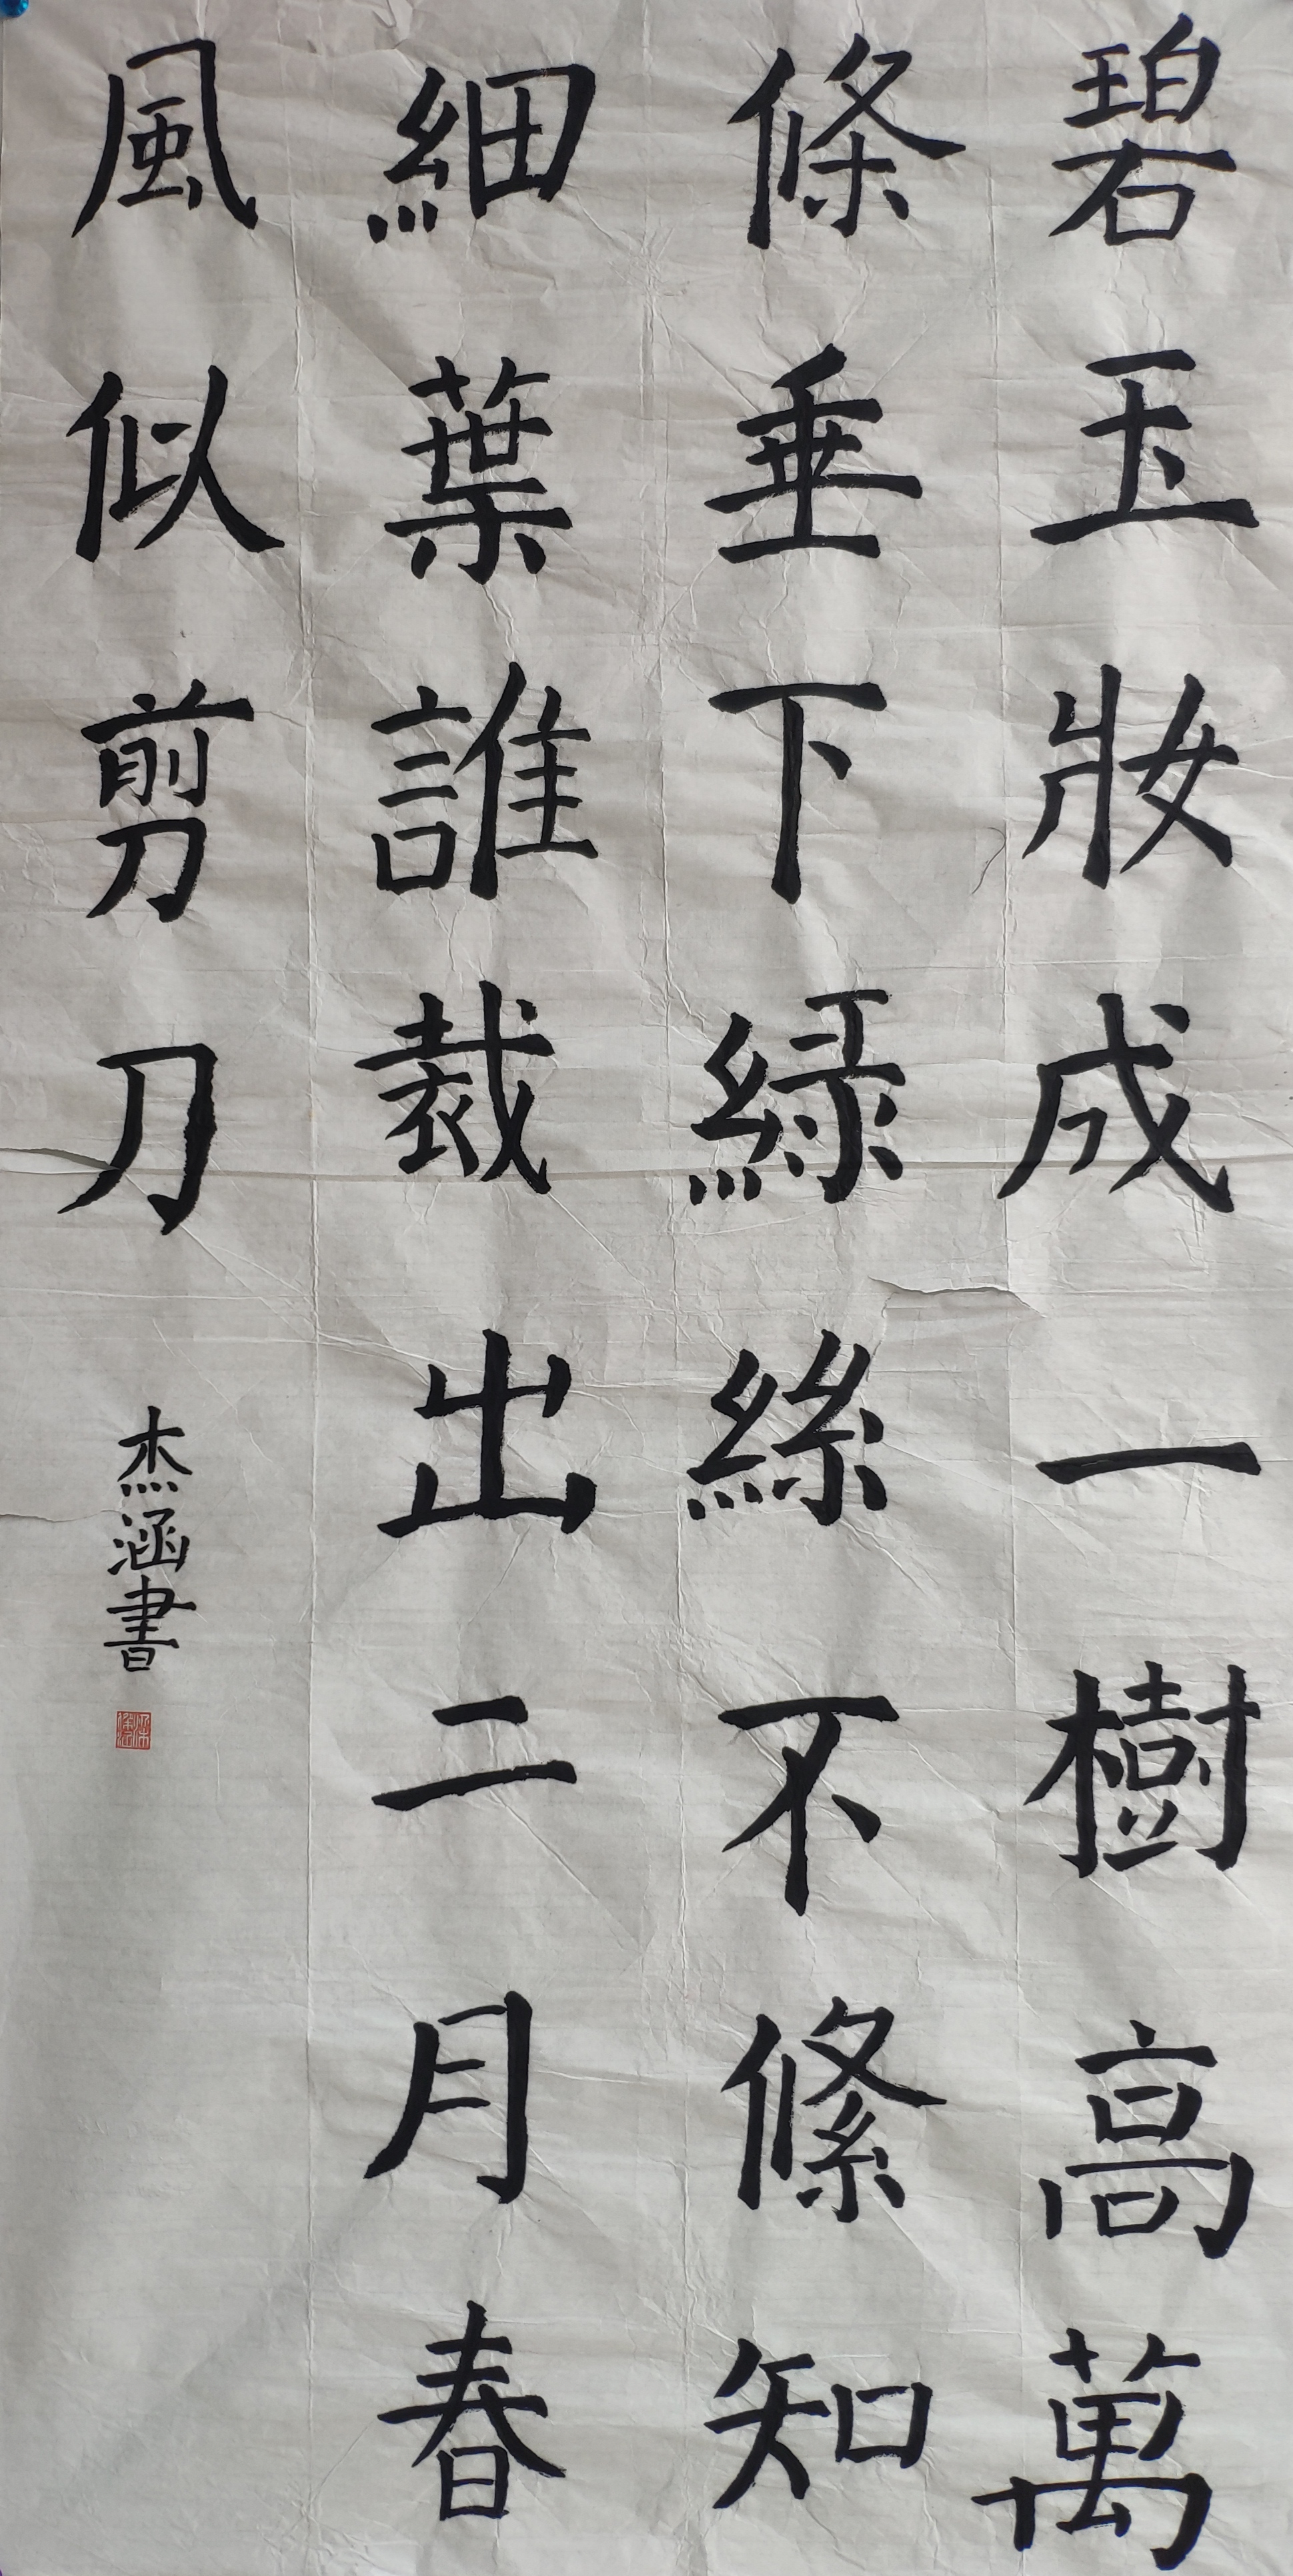 碧玉妝成一樹高萬
條垂下綠絲不絛知
細葉誰裁出二月春
風似剪刀
杰涵書